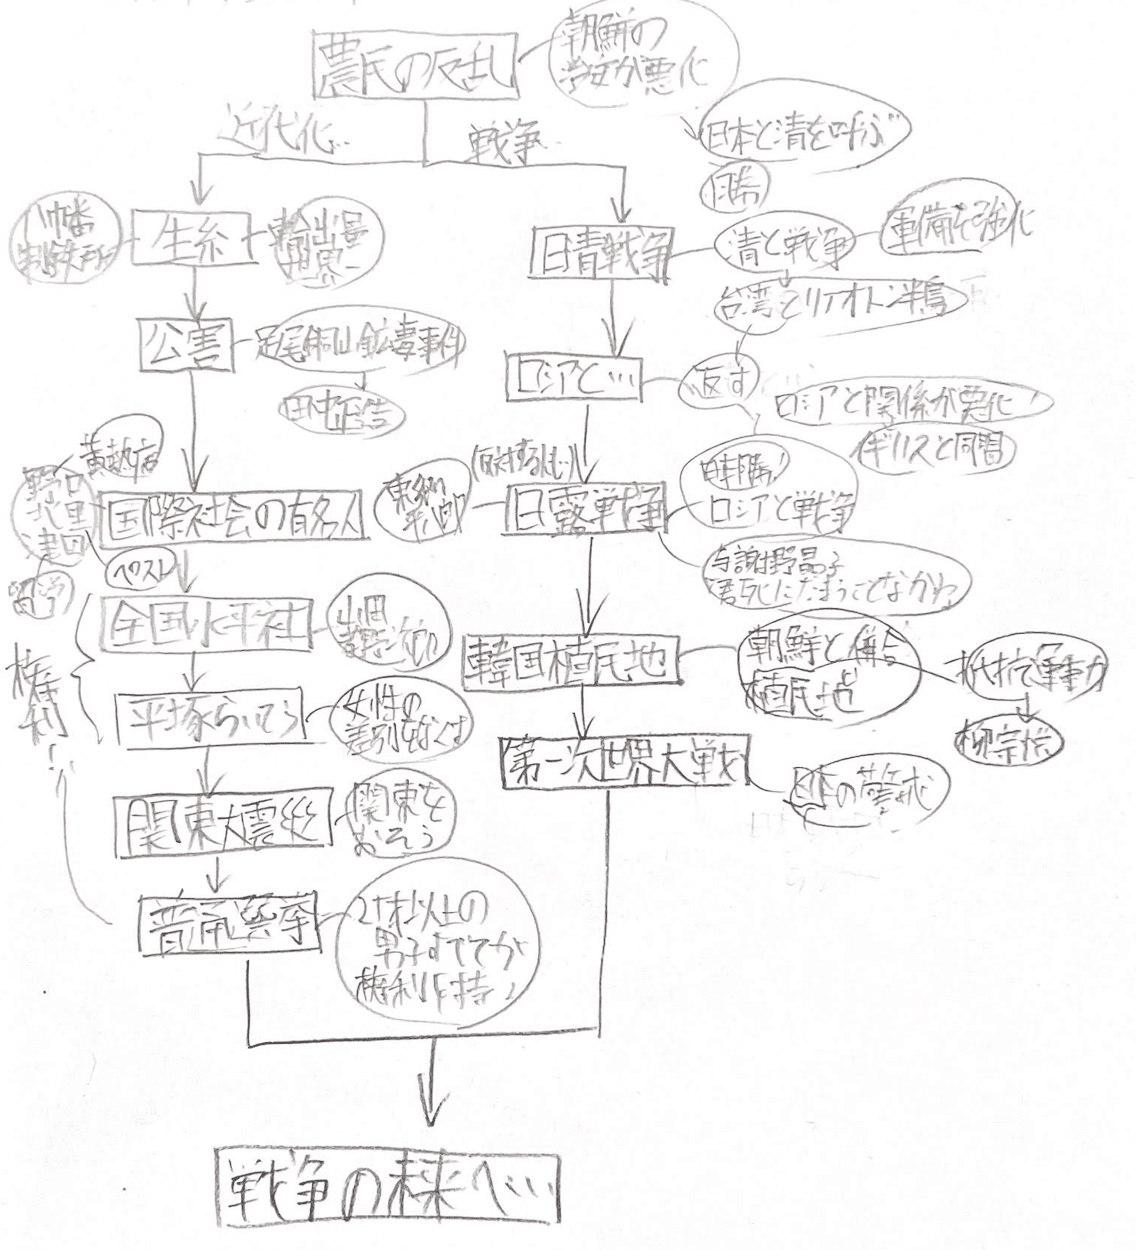 農民の反乱
朝鮮の
学女が悪化
近代化…
戦争…
日本と清を呼ぶ
日勝
八幡
製鉄所
生糸
輸出量
世界一
日清戦争
清と戦争
軍備を強化
台湾とリアオトン半島
公害
足尾銅山鉱毒事件
田中正造
ロシアと…
返す
ロシアと関係が悪化
イギリスと同盟
黄熱病
野口
北里
津田
国際社会の有名人
ペスト
留学
東郷
平八郎
(反対するも…)
日露戦争
日本勝利
ロシアと戦争
与謝野晶子
君死にたまうことなかれ
権利!
全国水平社
山田
孝野次郎
韓国植民地
朝鮮と併合
植民地
抵抗軍事力
柳宗悦
平塚らいてう
女性の
差別をなくす
第一次世界大戦
日本の警戒
関東大震災
関東を
おそう
普通選挙
25才以上の
男子すべてが
権利を持つ
戦争の未来へ…